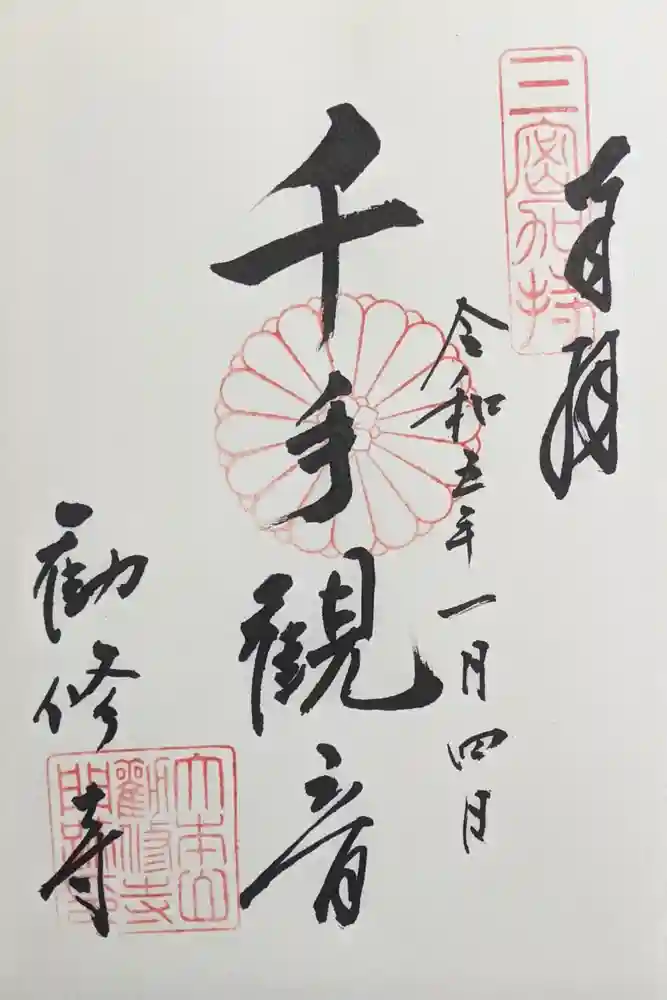 三密加持
奉拝
令和五年一月四日
千手観音
勧修寺
大本山
勸修寺